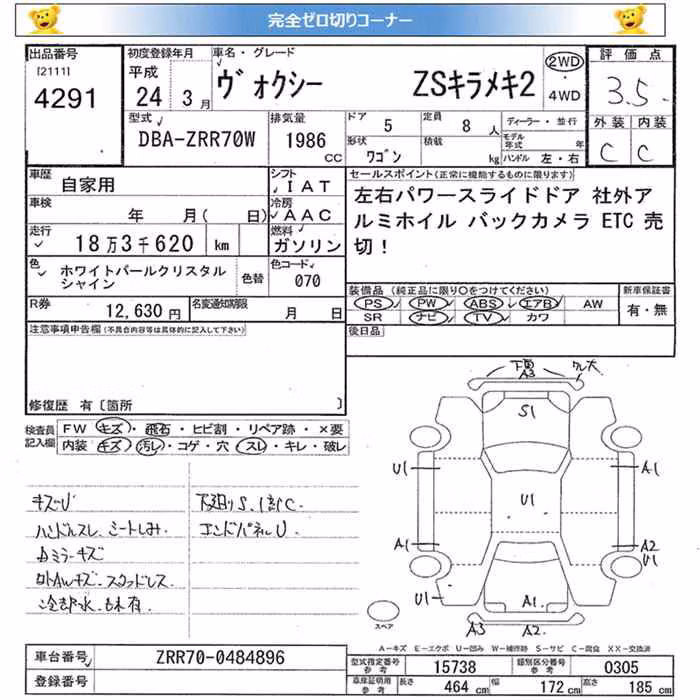 完全ゼロ切りコーナー
出品番号
[2111]
4291
初度登録年月
平成
24 3月
車名・グレード
ヴォクシー ZSキラメキ2
2WD
・
4WD
評価点
3.5
外装 内装
C C
型式
DBA-ZRR70W
排気量
1986
CC
ドア 5
定員 8 人
形状
ワゴン
積載
kg
ディーラー・並行
モデル
年式 年
ハンドル 左・右
車歴
自家用
シフト
IAT
車検
年 月( 日)
冷房
AAC
走行
18万3千620 km
燃料
ガソリン
色
ホワイトパールクリスタル
シャイン
色替
色コード
070
R券
12,630円
名変通知期限
月 日
セールスポイント(正常に機能するものに限ります)
左右パワースライドドア 社外ア
ルミホイル バックカメラ ETC 売
切!
装備品(純正品に限り○をつけてください)
PS PW ABS エアB AW
SR ナビ TV カワ
新車保証書
有・無
後日品
注意事項申告欄(不具合内容等は具体的に記入して下さい)
修復歴 有〔箇所 〕
検査員
記入欄
FW キズ・飛石・ヒビ割・リペア跡・×要
内装 キズ・汚レ・コゲ・穴・スレ・キレ・破レ
キズU
ハンドルスレ、シートしみ
ミラーキズ
外AWキズ・スタッドレス
冷却水
下廻りS
エンドパネルU
A3
S1
U1
A1
U1
A1
A2
U1
U1
A1
A3
A2
スペア
A-キズ E-エクボ U-凹み W-補修跡 S-サビ C-腐食 XX-交換済
車台番号
ZRR70-0484896
登録番号
型式指定番号
参考
15738
類別区分番号
参考
0305
車庫証明用
参考
長さ 464 cm
幅 172 cm
高さ 185 cm